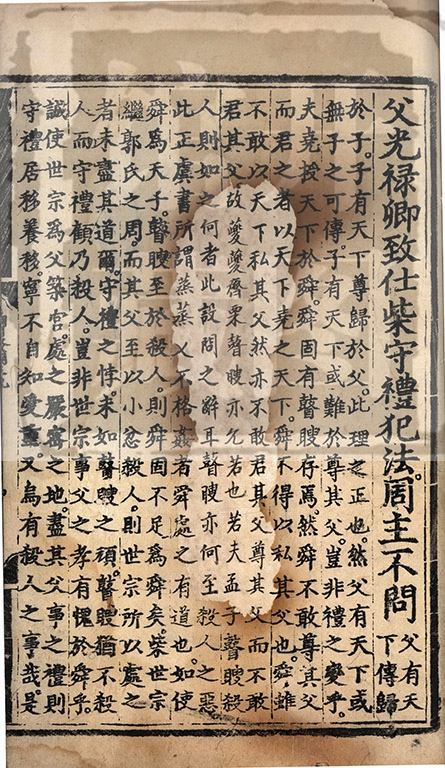 父光禄卿致仕柴守禮犯法周主不問父有天下傳歸
於子子有天下尊歸於父此理之正也然父有天下或
無子之可傳子有天下或難於尊其父豈非禮之變乎
夫堯授天下於舜舜固有瞽瞍存焉然舜不敢尊其父
而君之若以天下堯之天下舜不得以私其父也舜雖
不敢以天下私其父然亦不敢君其父尊其父而不敢
君其父故夔夔齊栗瞽瞍亦允若也若夫孟子瞽瞍殺
人則如之何者此設問之辭耳瞽瞍亦何至殺人之惡
此正虞書所謂烝烝乂不格姦者舜處之有道也如使
舜為天子瞽瞍至於殺人則舜固不足為舜矣柴世宗
繼郭氏之周而其父至以小忿殺人則世宗所以處之
者未盡其道爾守禮之悖未如瞽瞍之頑瞽瞍猶不殺
人而守禮顧乃殺人豈非世宗事父之孝有愧於舜乎
誠使世宗為父築宮處之嚴密之地盡其父事之禮則
守禮居移養移寧不自知愛重又烏有殺人之事哉是